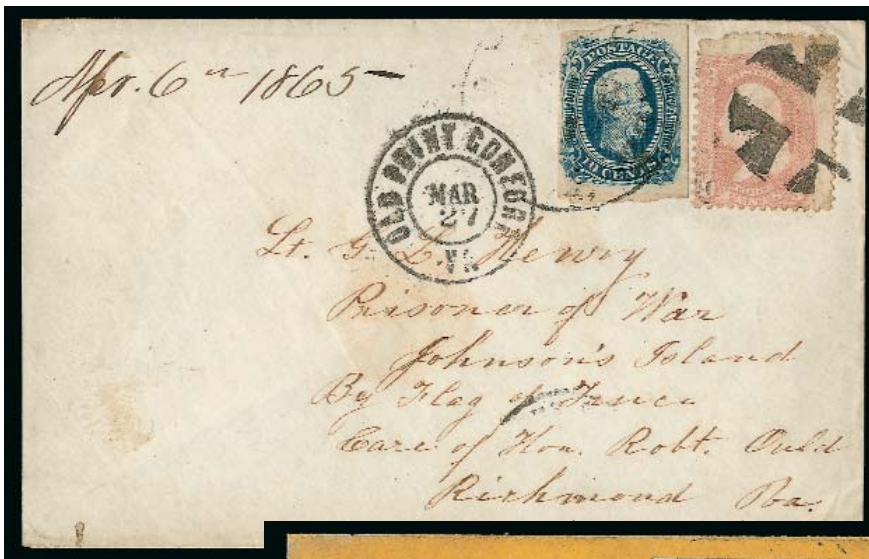 Apr. 6th 1865
POSTAGE
10 CENTS
OLD POINT COMFORT
MAR
27
VA
Lt. G. L. Henry
Prisoner of War
Johnson's Island
By Flag of Truce
Care of Hon. Robt. Ould
Richmond Va.